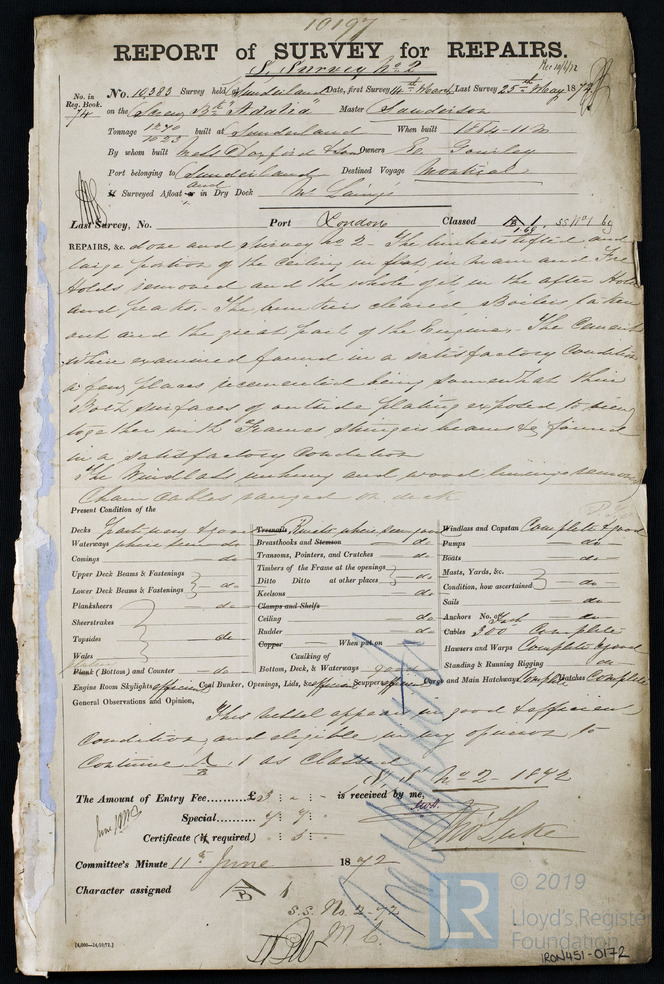 10197
REPORT of SURVEY for REPAIRS.
S. Survey No. 2
Rec 10/6/72
No. in Reg. Book. 74
No. 10,383 Survey held Sunderland Date, first Survey 14th March Last Survey 25th May 1872
on the Screw Bk "Adalia" Master Sanderson
Tonnage 1270 built at Sunderland When built 1864-11 m
By whom built Mess Doxford & Son Owners E. Gourley
Port belonging to Sunderland Destined Voyage Montreal
If Surveyed Afloat or and in Dry Dock Mr Laing's
Last Survey, No. Port London Classed A B 1. SS No 1
REPAIRS, &c. done and Survey No 2 - The limbers lifted and
large portion of the Ceiling in flat in main and Fore
Holds removed and the whole of it in the after Hold
and peaks. - The bunkers cleared Boilers taken
out and the great part of the Engines. The Cement
when examined found in a satisfactory Condition
a few places recemented being somewhat thin
Both surfaces of outside plating exposed to view
together with Frames stringers beams & found
in a satisfactory Condition
The Windlass unhung and wood linings removed
Chain Cables ranged on deck
Present Condition of the
Decks part new & good Treenails, Rivets where seen good Windlass and Capstan Complete & good
Waterways where seen do Breasthooks and Stemson do Pumps do
Comings do Transoms, Pointers, and Crutches do Boats do
Upper Deck Beams & Fastenings Timbers of the Frame at the openings Masts, Yards, &c.
Lower Deck Beams & Fastenings do Ditto Ditto at other places do Condition, how ascertained do
Planksheers do Keelsons do Sails do
Sheerstrakes Clamps and Shelfs Anchors No. of
Topsides do Ceiling do Cables 300 Complete
Wales Rudder do Hawsers and Warps Complete & good
Copper When put on Standing & Running Rigging do
Caulking of
Plank (Bottom) and Counter do Bottom, Deck, & Waterways good
Engine Room Skylights efficient Coal Bunker, Openings, Lids, &c. efficient Scuppers efficient Cargo and Main Hatchways Complete Hatches Complete
General Observations and Opinion,
This vessel appears in good & efficient
Condition, and eligible in my opinion to
Continue A B 1 as Classed
No 2 - 1872
The Amount of Entry Fee......... £ 3 : - : - is received by me,
Special .........
Certificate (if required) : 5 : -
Committee's Minute 11th June 1872
Character assigned A B 1
S.S. No. 2-72
M C.
© 2019
LR
Lloyd's Register
Foundation
IRON451-0172